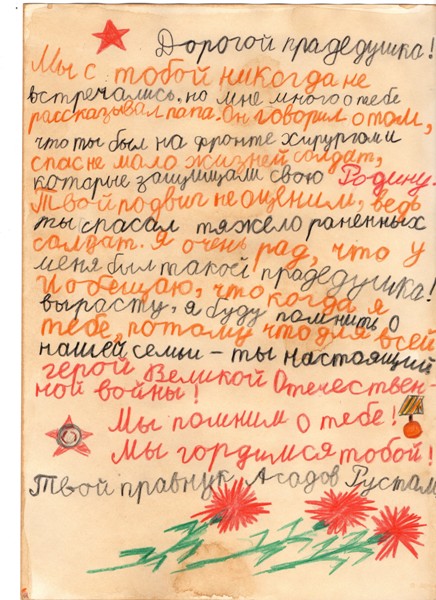 Дорогой прадедушка!
Мы с тобой никогда не
встречались, но мне много о тебе
рассказывал папа. Он говорил о том,
что ты был на фронте хирургом и
спас не мало жизней солдат,
которые защищали свою Родину.
Твой подвиг не оценим, ведь
ты спасал тяжело раненных
солдат. Я очень рад, что у
меня был такой прадедушка!
И обещаю, что когда я
вырасту, я буду помнить о
тебе, потому что для всей
нашей семьи - ты настоящий
герой Великой Отечествен-
ной войны!
Мы помним о тебе!
Мы гордимся тобой!
Твой правнук Асадов Рустам